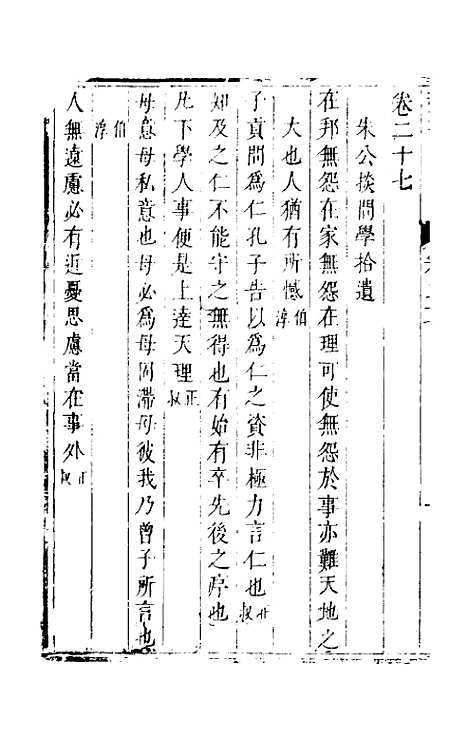 卷二十七
朱公掞問學拾遺
在邦無怨在家無怨在理可使無怨於事亦難天地之
大也人猶有所憾伯淳
子貢問為仁孔子告以為仁之資非極力言仁也正叔
知及之仁不能守之無得也有始有卒先後之序也
凡下學人事便是上達天理正叔
毋意毋私意也毋必為毋固滯毋彼我乃曾子所言也
伯淳
人無遠慮必有近憂思慮當在事外正叔